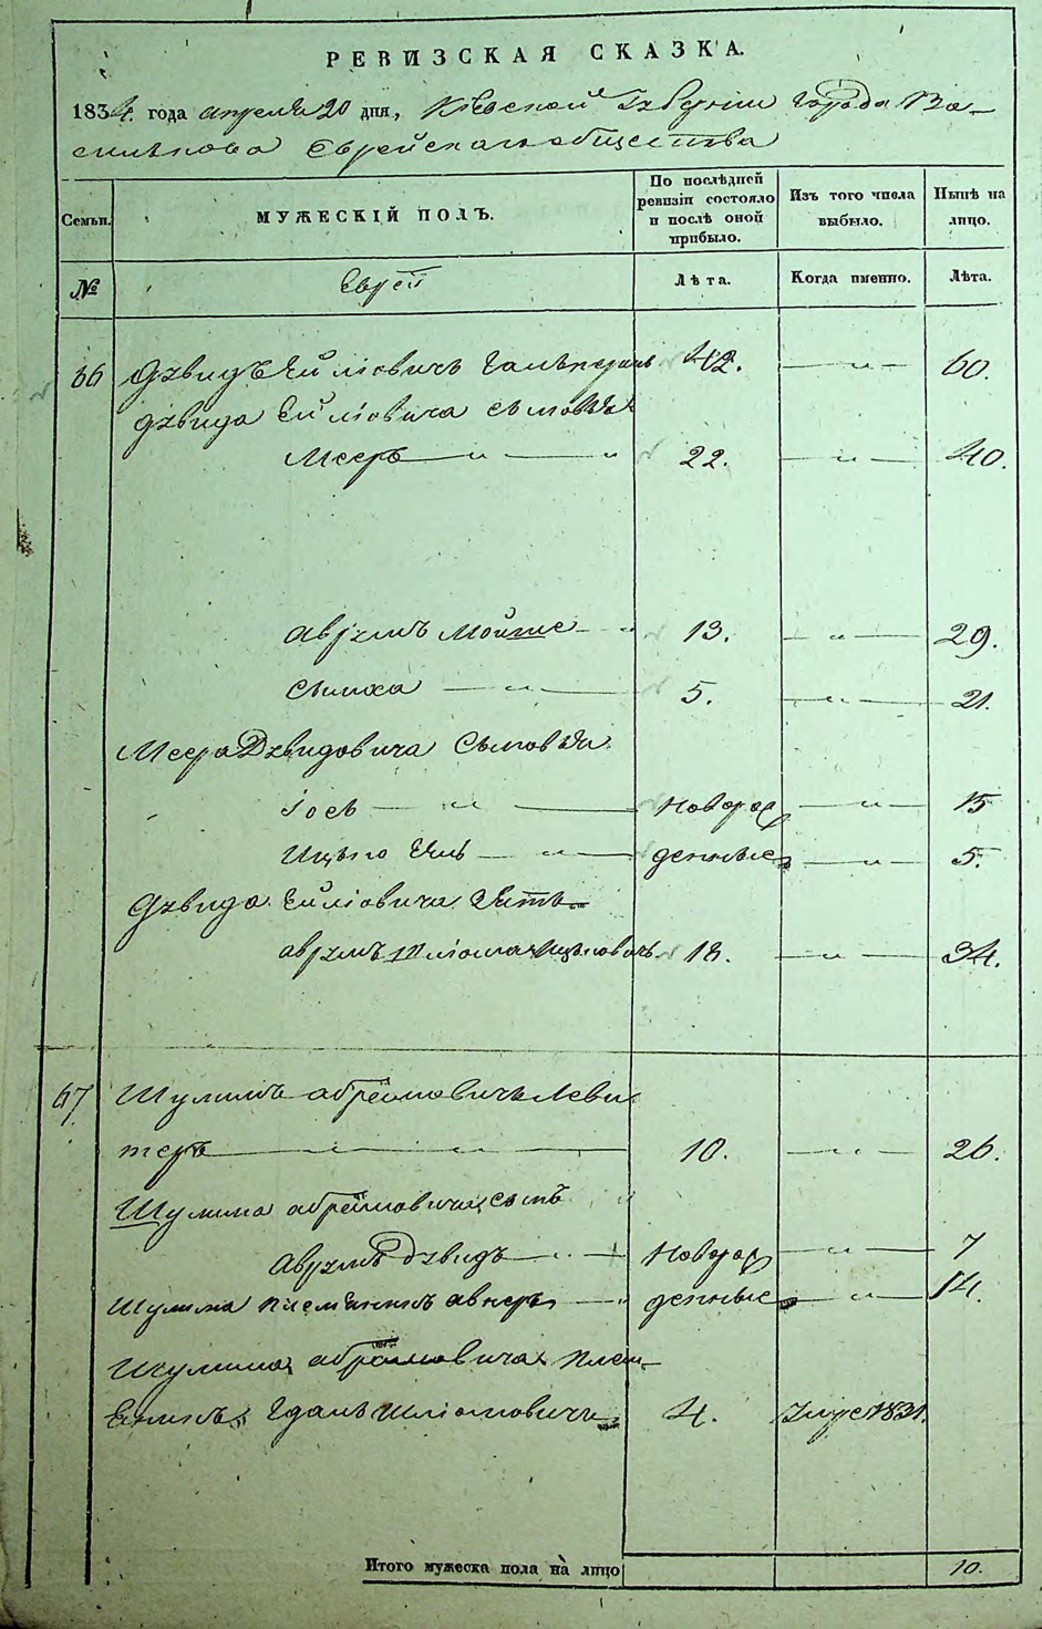 РЕВИЗСКАЯ СКАЗКА.
1834. года апреля 20 дня, Кіевской Губерніи Города Ва-
силькова Еврейскаго общества
Семьи.
МУЖЕСКІЙ ПОЛЪ.
По послѣдней ревизіи состояло и послѣ оной прибыло.
Изъ того числа выбыло.
Нынѣ на лицо.
№
Еврей
Лѣта.
Когда именно.
Лѣта.
66 Дувидъ Ейліовичъ Гальперинъ 42. — „ — 60.
Дувида Ейліовича сыновья
Мееръ — „ — „ 22. — „ — 40.
Аврумъ Мойше — „ 13. — „ — 29.
Симха — „ — 5. — „ — 21.
Меера Дувидовича Сыновья
Іось — „ — новорож — „ — 15
Ицько Ейль — „ — денные — „ — 5.
Дувида Ейліовича Зять
Аврумъ Шліома Ицьковичъ 18. — „ — 34.
67 Шулимъ абрамовичъ Леви
теръ — „ — „ — 10. — „ — 26.
Шулима абрамовича сынъ „
Аврумъ Дувидъ — „ — новорож — „ — 7
Шулима племянникъ авнеръ — „ денные — „ — 14.
Шулима абрамовича племя-
янникъ Шліомовичъ 4. Умре 1831.
Итого мужеска пола на лицо 10.